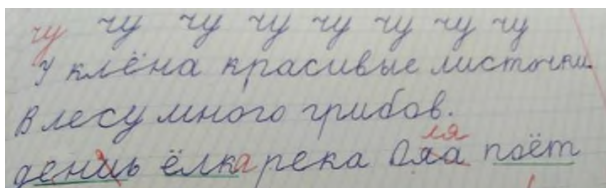 чу чу чу чу чу чу чу чу
У клёна красивые листочки.
В лесу много грибов.
ля
день ёлка река Оля поёт